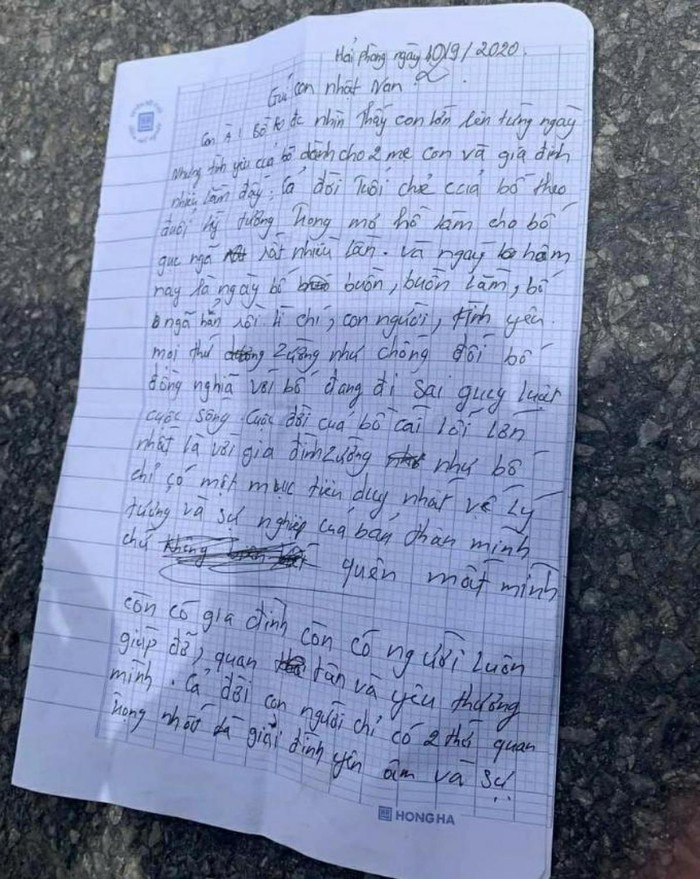 Hải phòng ngày 10/9/2020.
Gửi con nhật Nan
Con À! Bố ko đc nhìn thấy con lớn lên từng ngày
Nhưng tình yêu của bố dành cho 2 mẹ con và gia đình
nhiều lắm đấy. Cả đời Tuổi chẻ của bố theo
đuổi lý tưởng trong mơ hồ làm cho bố
gục ngã rất nhiều lần. và ngay hôm
nay là ngày bố buồn, buồn lắm, bố
ngã hẳn rồi lí chí, con người, tình yêu.
mọi thứ zường như chống đối bố
đồng nghĩa với bố đang đi sai quy luật
cuộc sống. Cuộc đời của bố cái lỗi lớn
nhất là với gia đình zường như bố
chỉ có một mục tiêu duy nhất về lý
tưởng và sự nghiệp của bản thân mình
chứ quên mất mình
còn có gia đình còn có người luôn
giúp đỡ, quan tân và yêu thương
mình. Cả đời con người chỉ có 2 thứ quan
trong nhất là giải đình yên ấm và sự
HONG HA